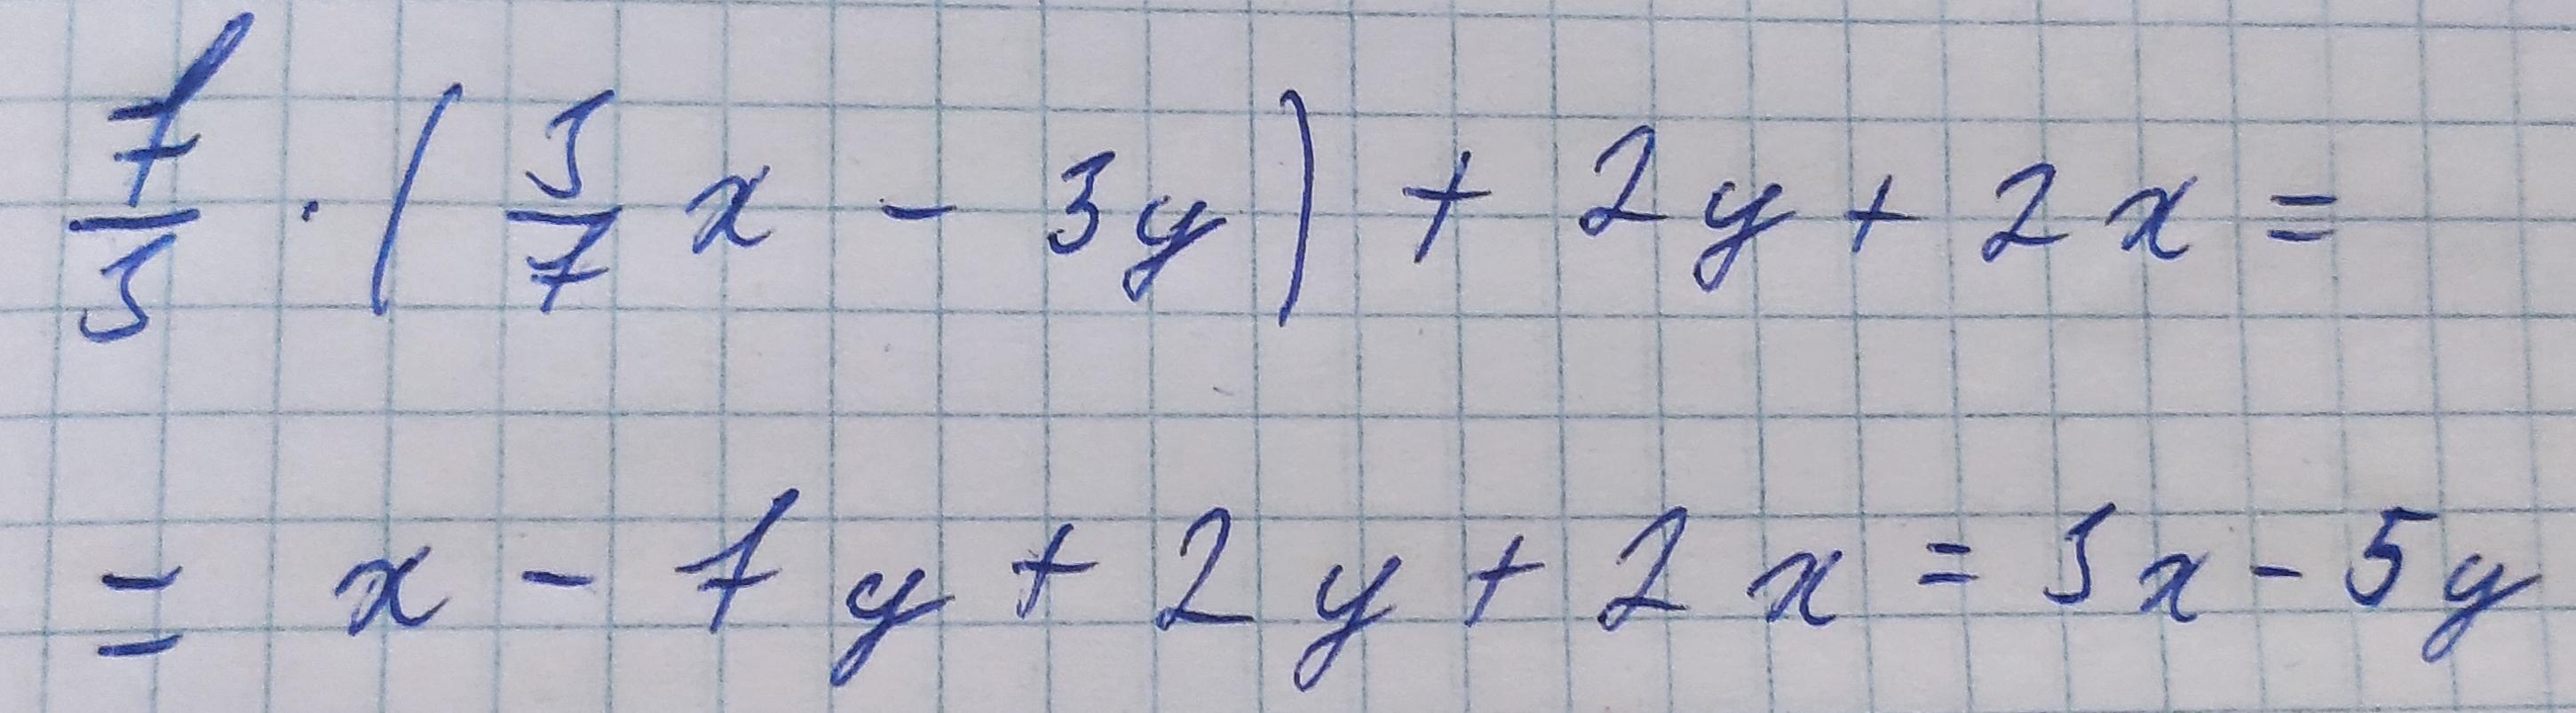 7/3 · (3/7 x - 3y) + 2y + 2x =
= x - 7y + 2y + 2x = 3x - 5y